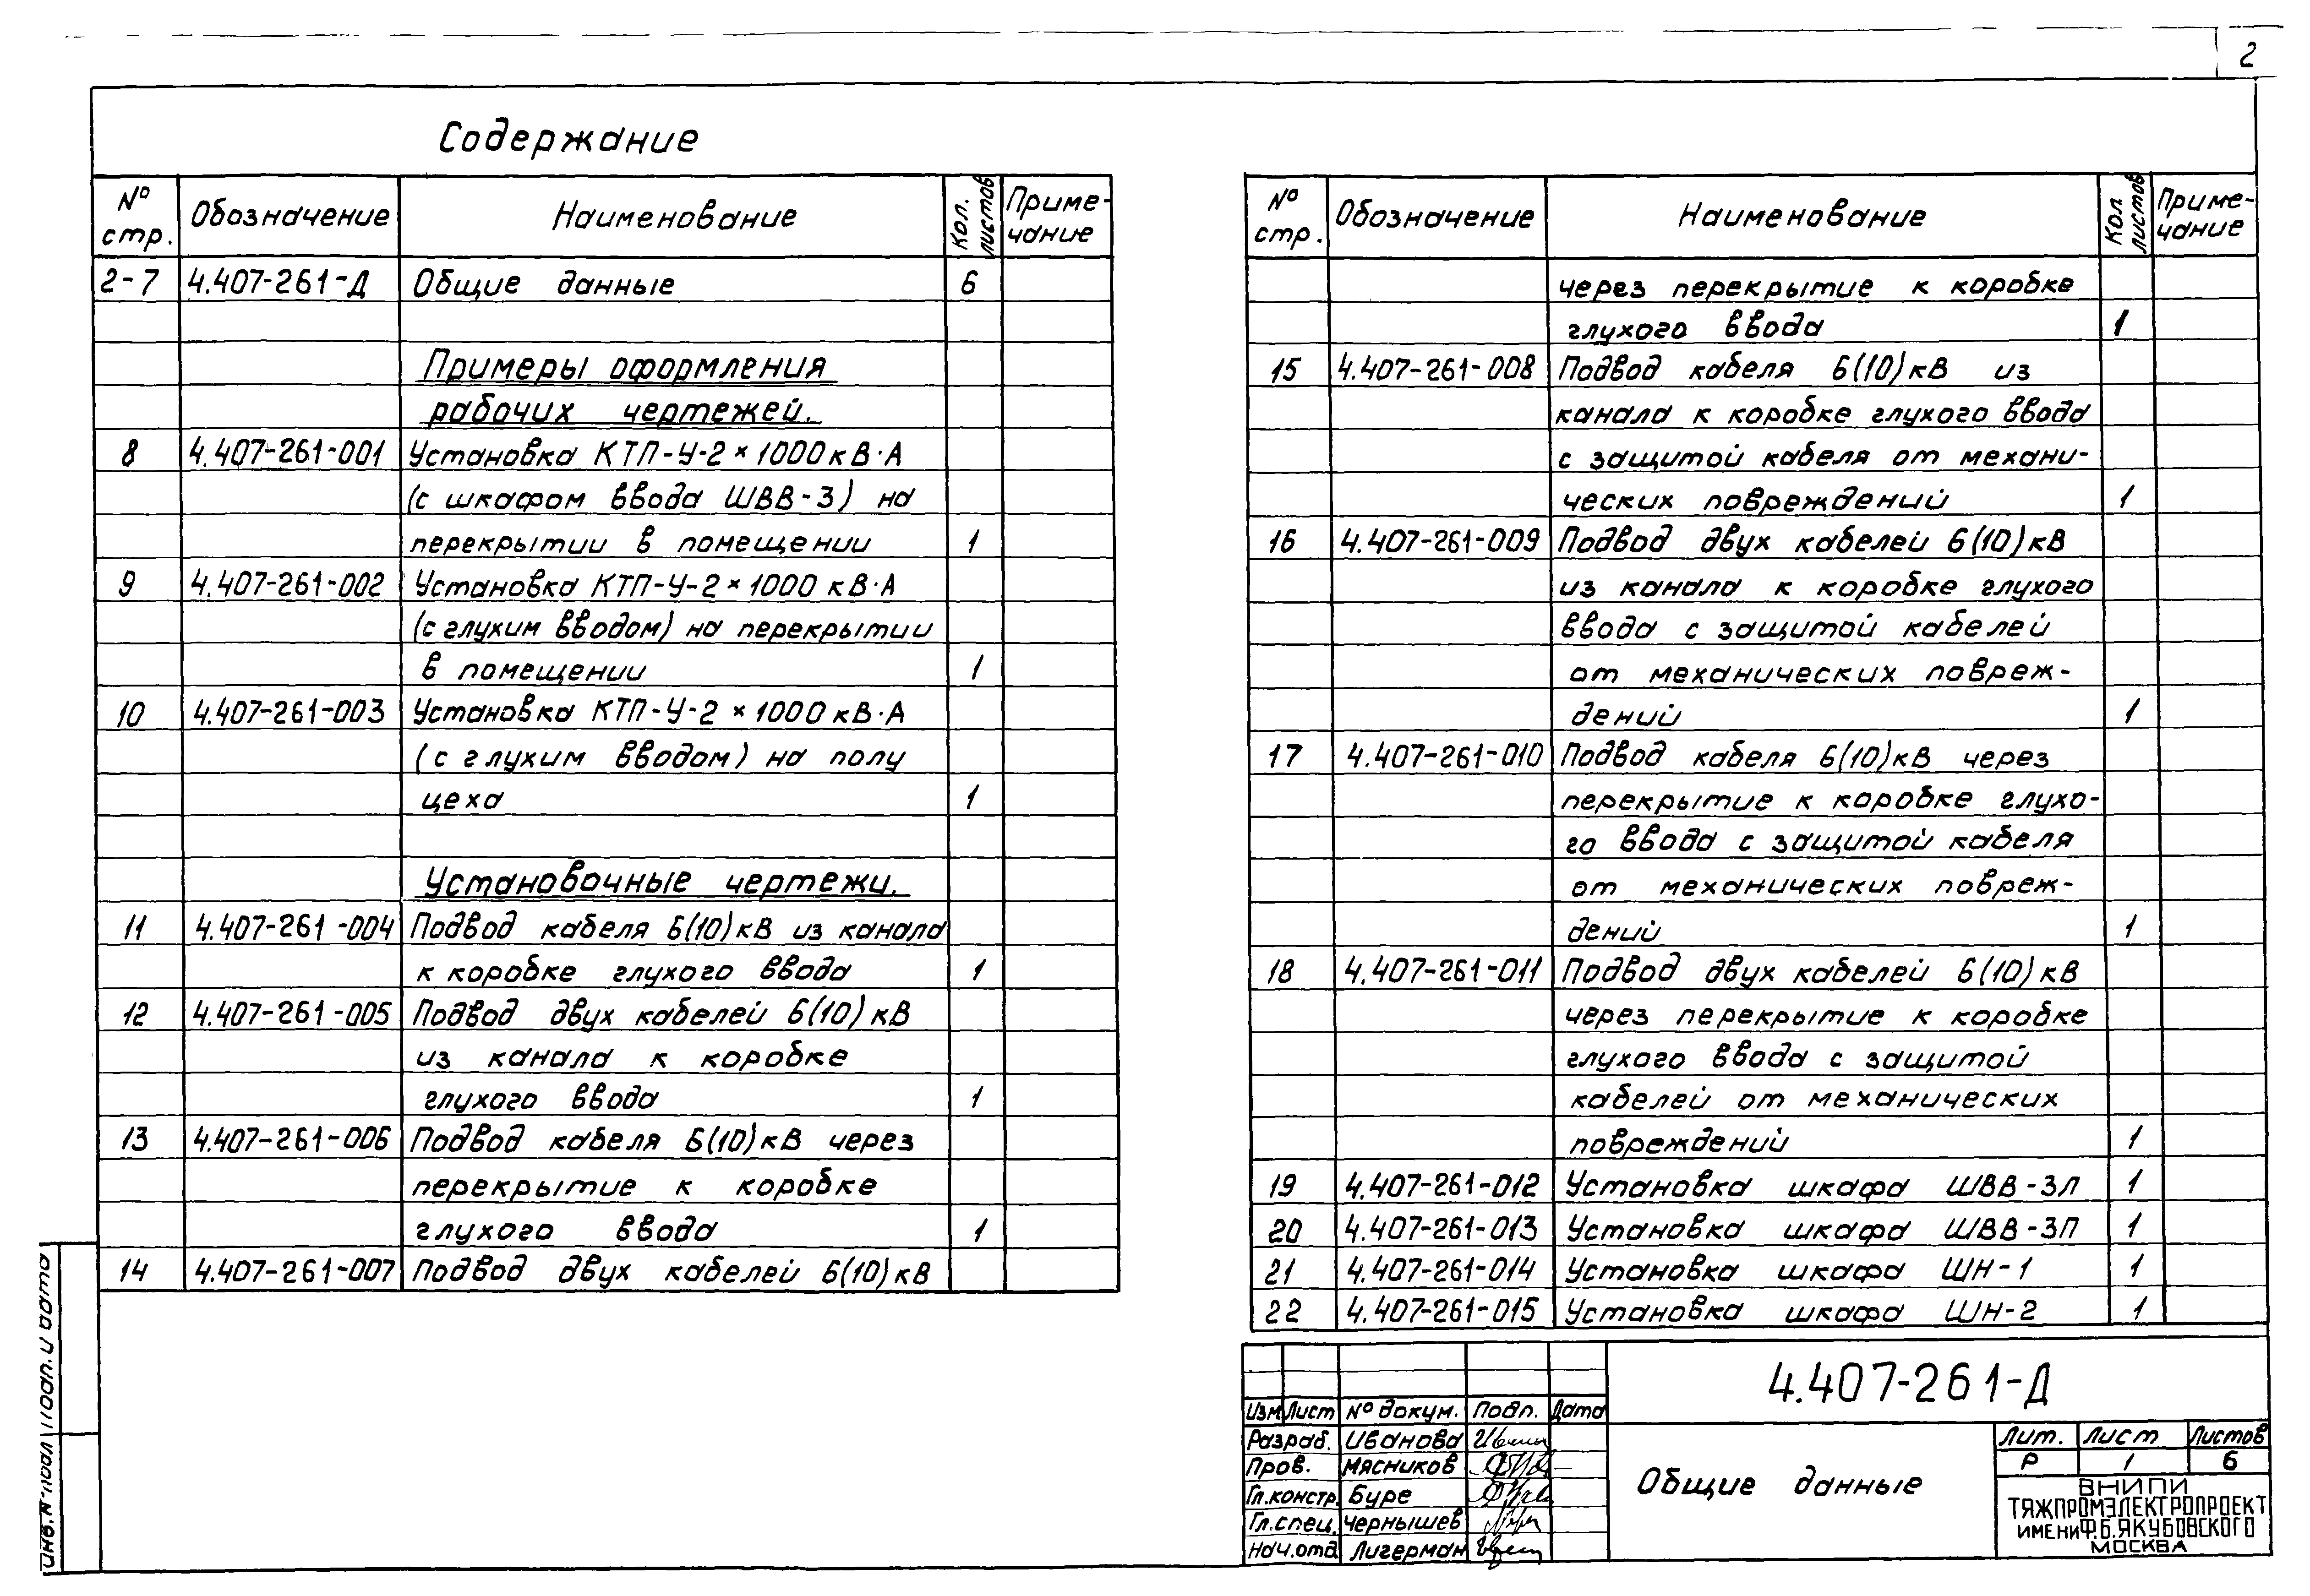 2
Содержание
№ стр. Обозначение Наименование Кол. листов Приме-чание
2-7 4.407-261-Д Общие данные 6
Примеры оформления
рабочих чертежей.
8 4.407-261-001 Установка КТП-У-2×1000кВ·А
(с шкафом ввода ШВВ-3) на
перекрытии в помещении 1
9 4.407-261-002 Установка КТП-У-2×1000 кВ·А
(с глухим вводом) на перекрытии
в помещении 1
10 4.407-261-003 Установка КТП-У-2×1000кВ·А
(с глухим вводом) на полу
цеха 1
Установочные чертежи.
11 4.407-261-004 Подвод кабеля 6(10)кВ из канала
к коробке глухого ввода 1
12 4.407-261-005 Подвод двух кабелей 6(10)кВ
из канала к коробке
глухого ввода 1
13 4.407-261-006 Подвод кабеля 6(10)кВ через
перекрытие к коробке
глухого ввода 1
14 4.407-261-007 Подвод двух кабелей 6(10)кВ
№ стр. Обозначение Наименование Кол листов Приме-чание
через перекрытие к коробке
глухого ввода 1
15 4.407-261-008 Подвод кабеля 6(10)кВ из
канала к коробке глухого ввода
с защитой кабеля от механи-
ческих повреждений 1
16 4.407-261-009 Подвод двух кабелей 6(10)кВ
из канала к коробке глухого
ввода с защитой кабелей
от механических повреж-
дений 1
17 4.407-261-010 Подвод кабеля 6(10)кВ через
перекрытие к коробке глухо-
го ввода с защитой кабеля
от механических повреж-
дений 1
18 4.407-261-011 Подвод двух кабелей 6(10)кВ
через перекрытие к коробке
глухого ввода с защитой
кабелей от механических
повреждений 1
19 4.407-261-012 Установка шкафа ШВВ-3Л 1
20 4.407-261-013 Установка шкафа ШВВ-3П 1
21 4.407-261-014 Установка шкафа ШН-1 1
22 4.407-261-015 Установка шкафа ШН-2 1
4.407-261-Д
Изм Лист № докум. Подп. Дата
Разраб. Иванова
Пров. Мясников
Гл.констр. Буре
Гл.спец. Чернышев
Нач.отд. Лигерман
Общие данные
Лит. Лист Листов
Р 1 6
ВНИПИ
ТЯЖПРОМЭЛЕКТРОПРОЕКТ
ИМЕНИ Ф.Б.ЯКУБОВСКОГО
МОСКВА
Инв.№ подл